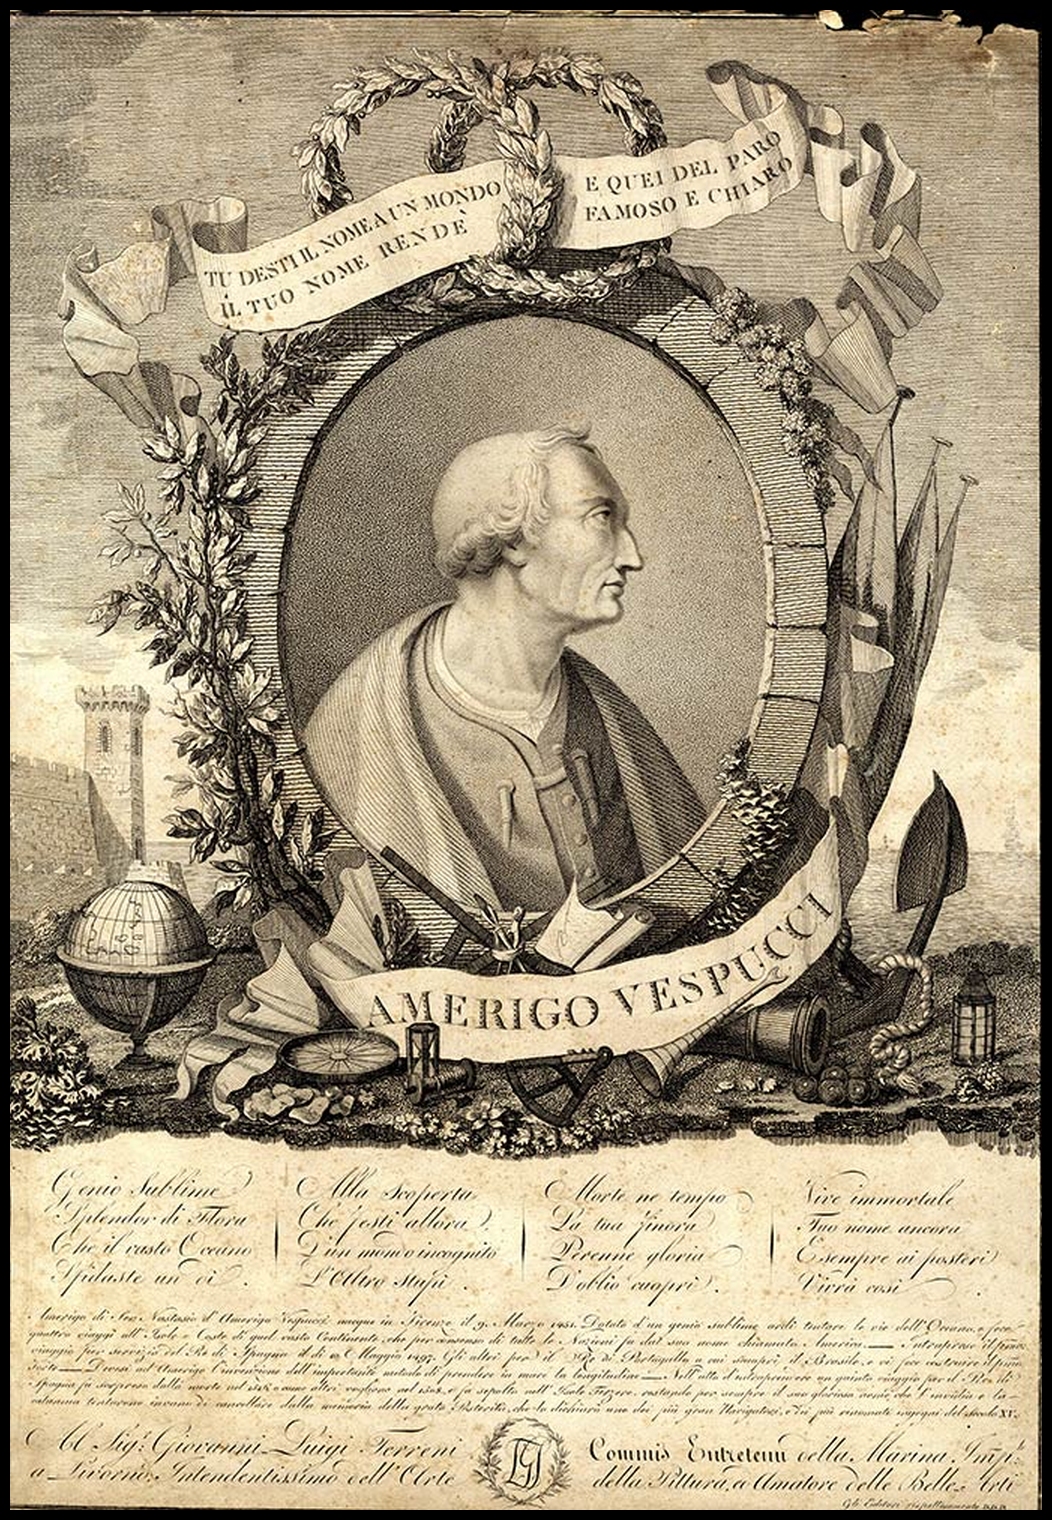 TU DESTI IL NOME A UN MONDO
IL TUO NOME RENDÈ
E QUEI DEL PARO
FAMOSO E CHIARO
AMERIGO VESPUCCI
Genio Sublime
Splendor di Flora
Che il vasto Oceano
Sfidaste un dì.
Alla scoperta
Che festi allora
D'un mondo incognito
L'Altro stupì.
Morte ne tempo
La tua finora
Perenne gloria
D'oblio cuoprì.
Vive immortale
Tuo nome ancora
E sempre ai posteri
Vivrà così
Amerigo di Ser Nastasio d'Amerigo Vespucci nacque in Firenze il 9. Marzo 1451. Dotato d'un genio sublime ardì tentare le vie dell'Oceano, e fece
quattro viaggi all'Isole e Coste di quel vasto Continente, che per consenso di tutte le Nazioni fu dal suo nome chiamato America. — Intraprese il primo
viaggio per servizio del Re di Spagna il dì 10 Maggio 1497. Gli altri per il Re di Portogallo a cui scuoprì il Brasile, e vi fece costruire il primo
Forte — Devesi ad Amerigo l'invenzione dell'importante metodo di prendere in mare la longitudine — Nell'atto d'intraprendere un quinto viaggio per il Re di
Spagna fu sorpreso dalla morte nel o come altri vogliono nel 1508, e fu sepolto nell'Isole Terzere, restando per sempre il suo glorioso nome che l'invidia e la
calunnia tentarono invano di cancellare dalla memoria della grata Posterità, che lo dichiarò uno dei più gran Navigatori, e dei più rinomati ingegni del Secolo XV.
Al Sigr. Giovanni Luigi Terreni
a Livorno, Intendentissimo dell'Arte
Commis Entretenu della Marina Imple.
della Pittura, e Amatore delle Belle Arti
Gli Editori rispettosamente D.D.D.